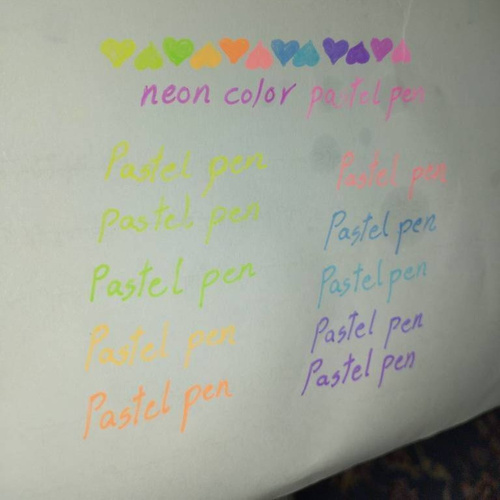 neon color pastel pen
Pastel pen
Pastel pen
Pastel pen
Pastel pen
Pastel pen
Pastel pen
Pastel pen
Pastel pen
Pastel pen
Pastel pen